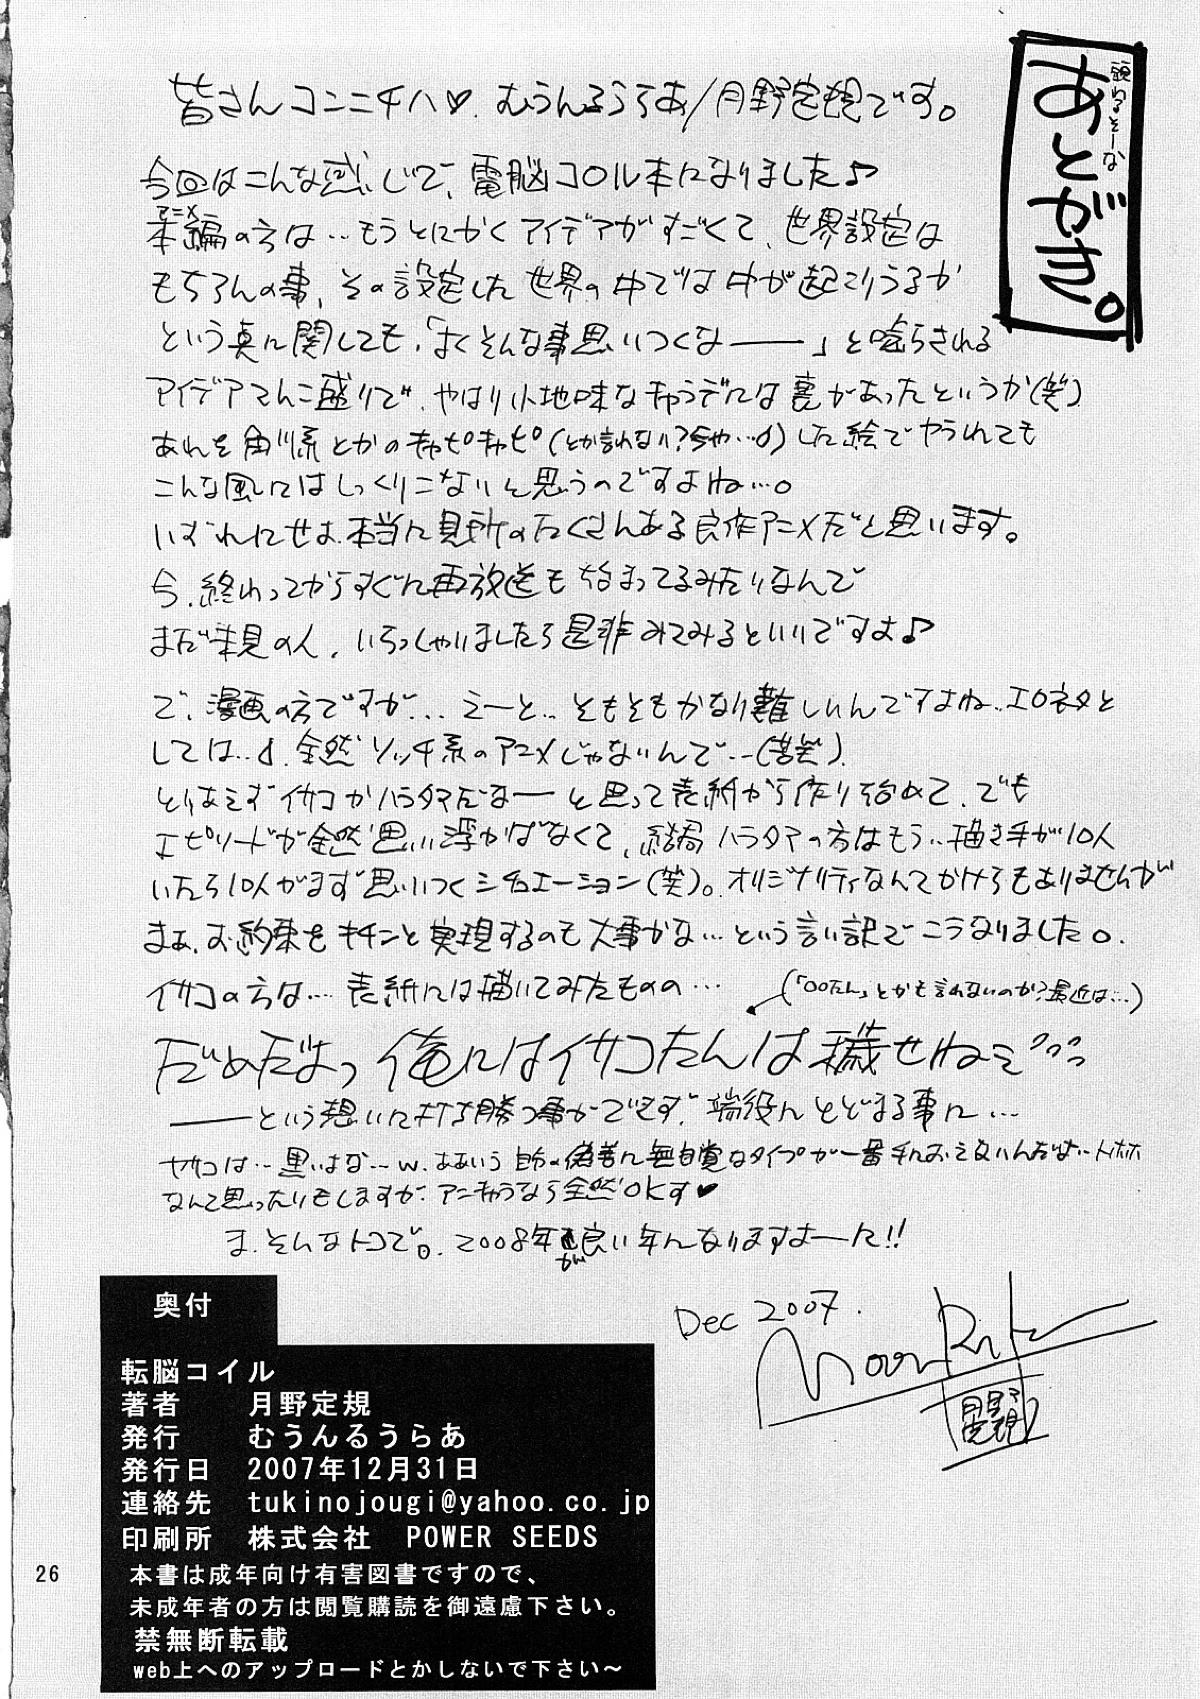 頭わるそーな
あとがき。
皆さんコンニチハ♡. むうんるうらあ/月野定規です。
今回はこんな感じで、電脳コイル本になりました♪
アニメ
本編の方は…もうとにかくアイデアがすごくて、世界設定は
もちろんの事、その設定した世界の中で 起こりうるか
という点に関しても、「よくそんな事思いつくなーーー」と唸らされる
アイデアてんこ盛りで、やはり 地味なキャラデには裏があったというか(笑)
あれを角川系とかのキャピキャピ(とか言わない?今や…)した絵でやられても
こんな風にはしっくりこないと思うのですよね…。
いずれにせよ、本当に見所のたくさんある良作アニメだと思います。
今、終わってからすぐに再放送も始まってるみたいなんで
まだ未見の人、いらっしゃいましたら是非みてみるといいですよ♪
で、漫画の方ですが… えーと… そもそもかなり難しいんですよね.. エロネタと
しては… 全然ソッチ系のアニメじゃないんで…(苦笑).
とりあえずイサコかハラケンだなーーと思って表紙から作り始めて、でも
エピソードが全然思い浮かばなくて、結局 の方はもう.. 描き手が10人
いたら10人がまず思いつくシチュエーション(笑)。オリジナリティなんてかけらもありませんが
まぁ、お約束をキチンと実現するのも大事かな…という言い訳でこうなりました。
イサコの方は… 表紙には描いてみたものの…
(「○○たん」とかも言わないのか?最近は…)
だめだよっ 俺にはイサコたんは穢せねぇ
ーーーという想いに打ち勝つ事ができず、端役にとどまる事に…
ヤサコは… 黒いよな…w. ああいう自分の偽善に無自覚なタイプが一番手におえないんだよな…トホホ
なんて思ったりもしますが、アニキャラなら全然OKす♥
ま、そんなトコで。2008年が良い年になりますよーーに!!
Dec 2007.
月野定規
奥付
転脳コイル
著者 月野定規
発行 むうんるうらあ
発行日 2007年12月31日
連絡先 tukinojougi@yahoo.co.jp
印刷所 株式会社 POWER SEEDS
本書は成年向け有害図書ですので、
未成年者の方は閲覧購読を御遠慮下さい。
禁無断転載
web上へのアップロードとかしないで下さい〜
26